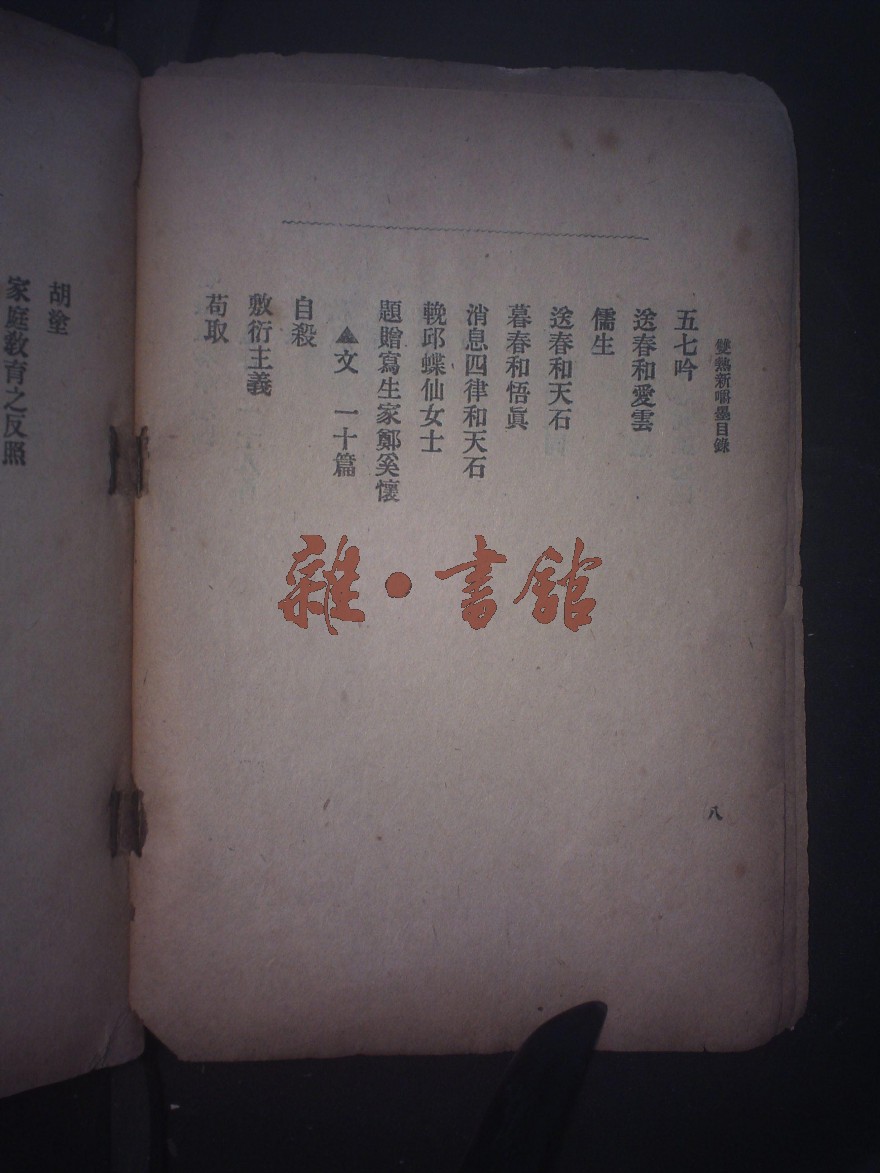 雙熱新嚼墨目錄
五七吟
送春和愛雲
儒生
送春和天石
暮春和悟眞
消息四律和天石
輓邱蝶仙女士
題贈寫生家鄭奚懷
▲文 一十篇
自殺
敷衍主義
苟取
八
胡塗
家庭敎育之反照
雜·書館